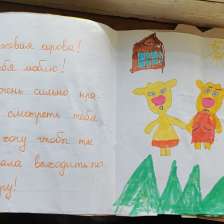 жевая корова!
бя люблю!
очень сильно нра
смотреть тебя
хочу чтобы ты
ала выходить по
ру!